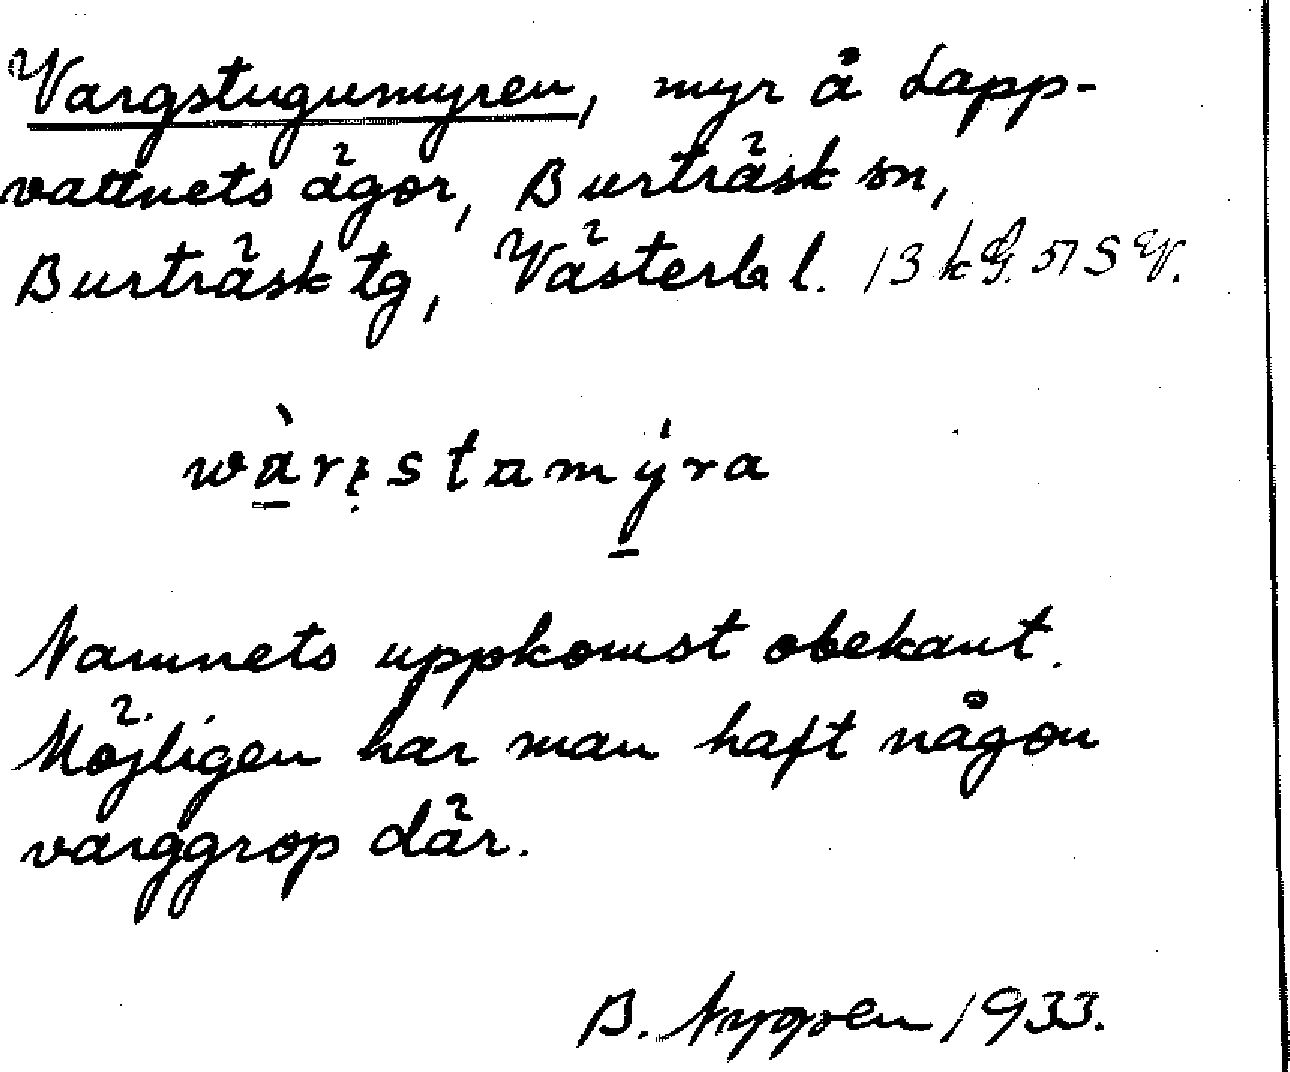 Vargstugumyren, myr å Lapp-
vattnets ägor, Burträsk sn,
Burträsk tg, Västerb l.
Namnets uppkomst obekant.
Möjligen har man haft någon
varggrop där.
B. Nygren 1933.